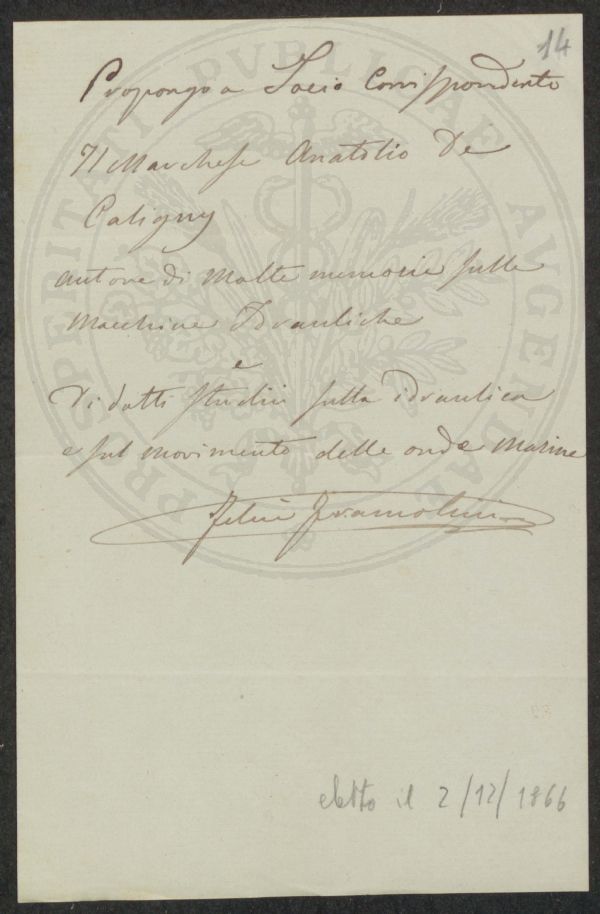 14
Propongo a Socio Corrispondente
Il Marchese Anatolio De
Caligny
autore di molte memorie sulle
Macchine Idrauliche
e
di dotti studii sulla idraulica
e sul movimento delle onde Marine
eletto il 2/12/1866
PROSPERITATI PVBLICAE AVGENDAE